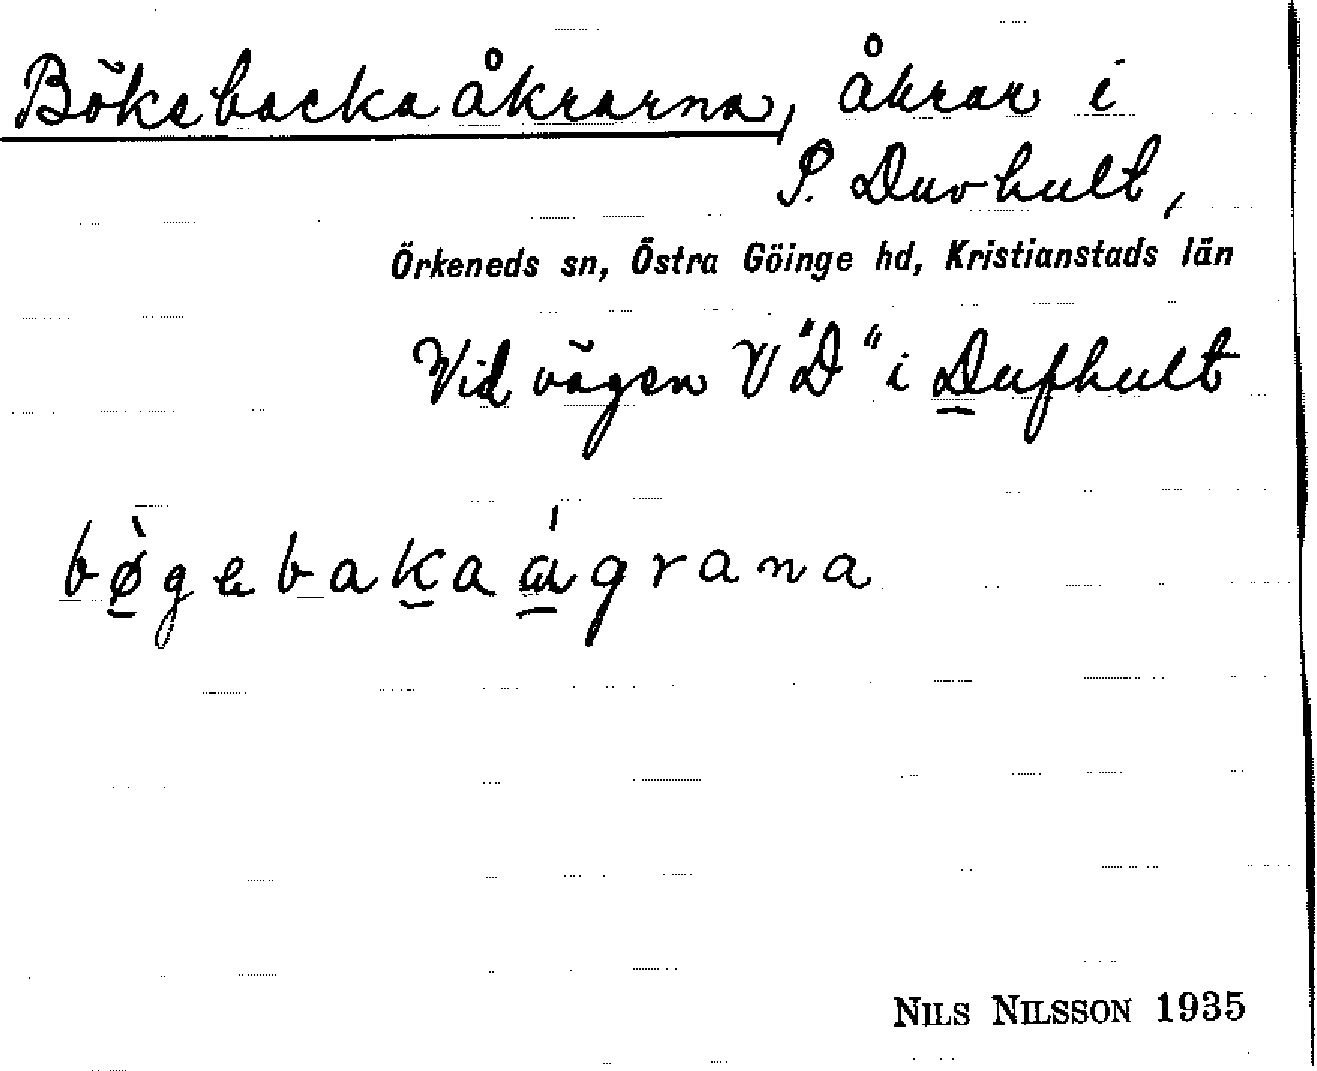 Bökebackaåkrarna, åkrar i
P. Duvhult,
Örkeneds sn, Östra Göinge hd, Kristianstads län
Vid vägen V "D" i Dufhult
bø̀gebakaágrana
NILS NILSSON 1935